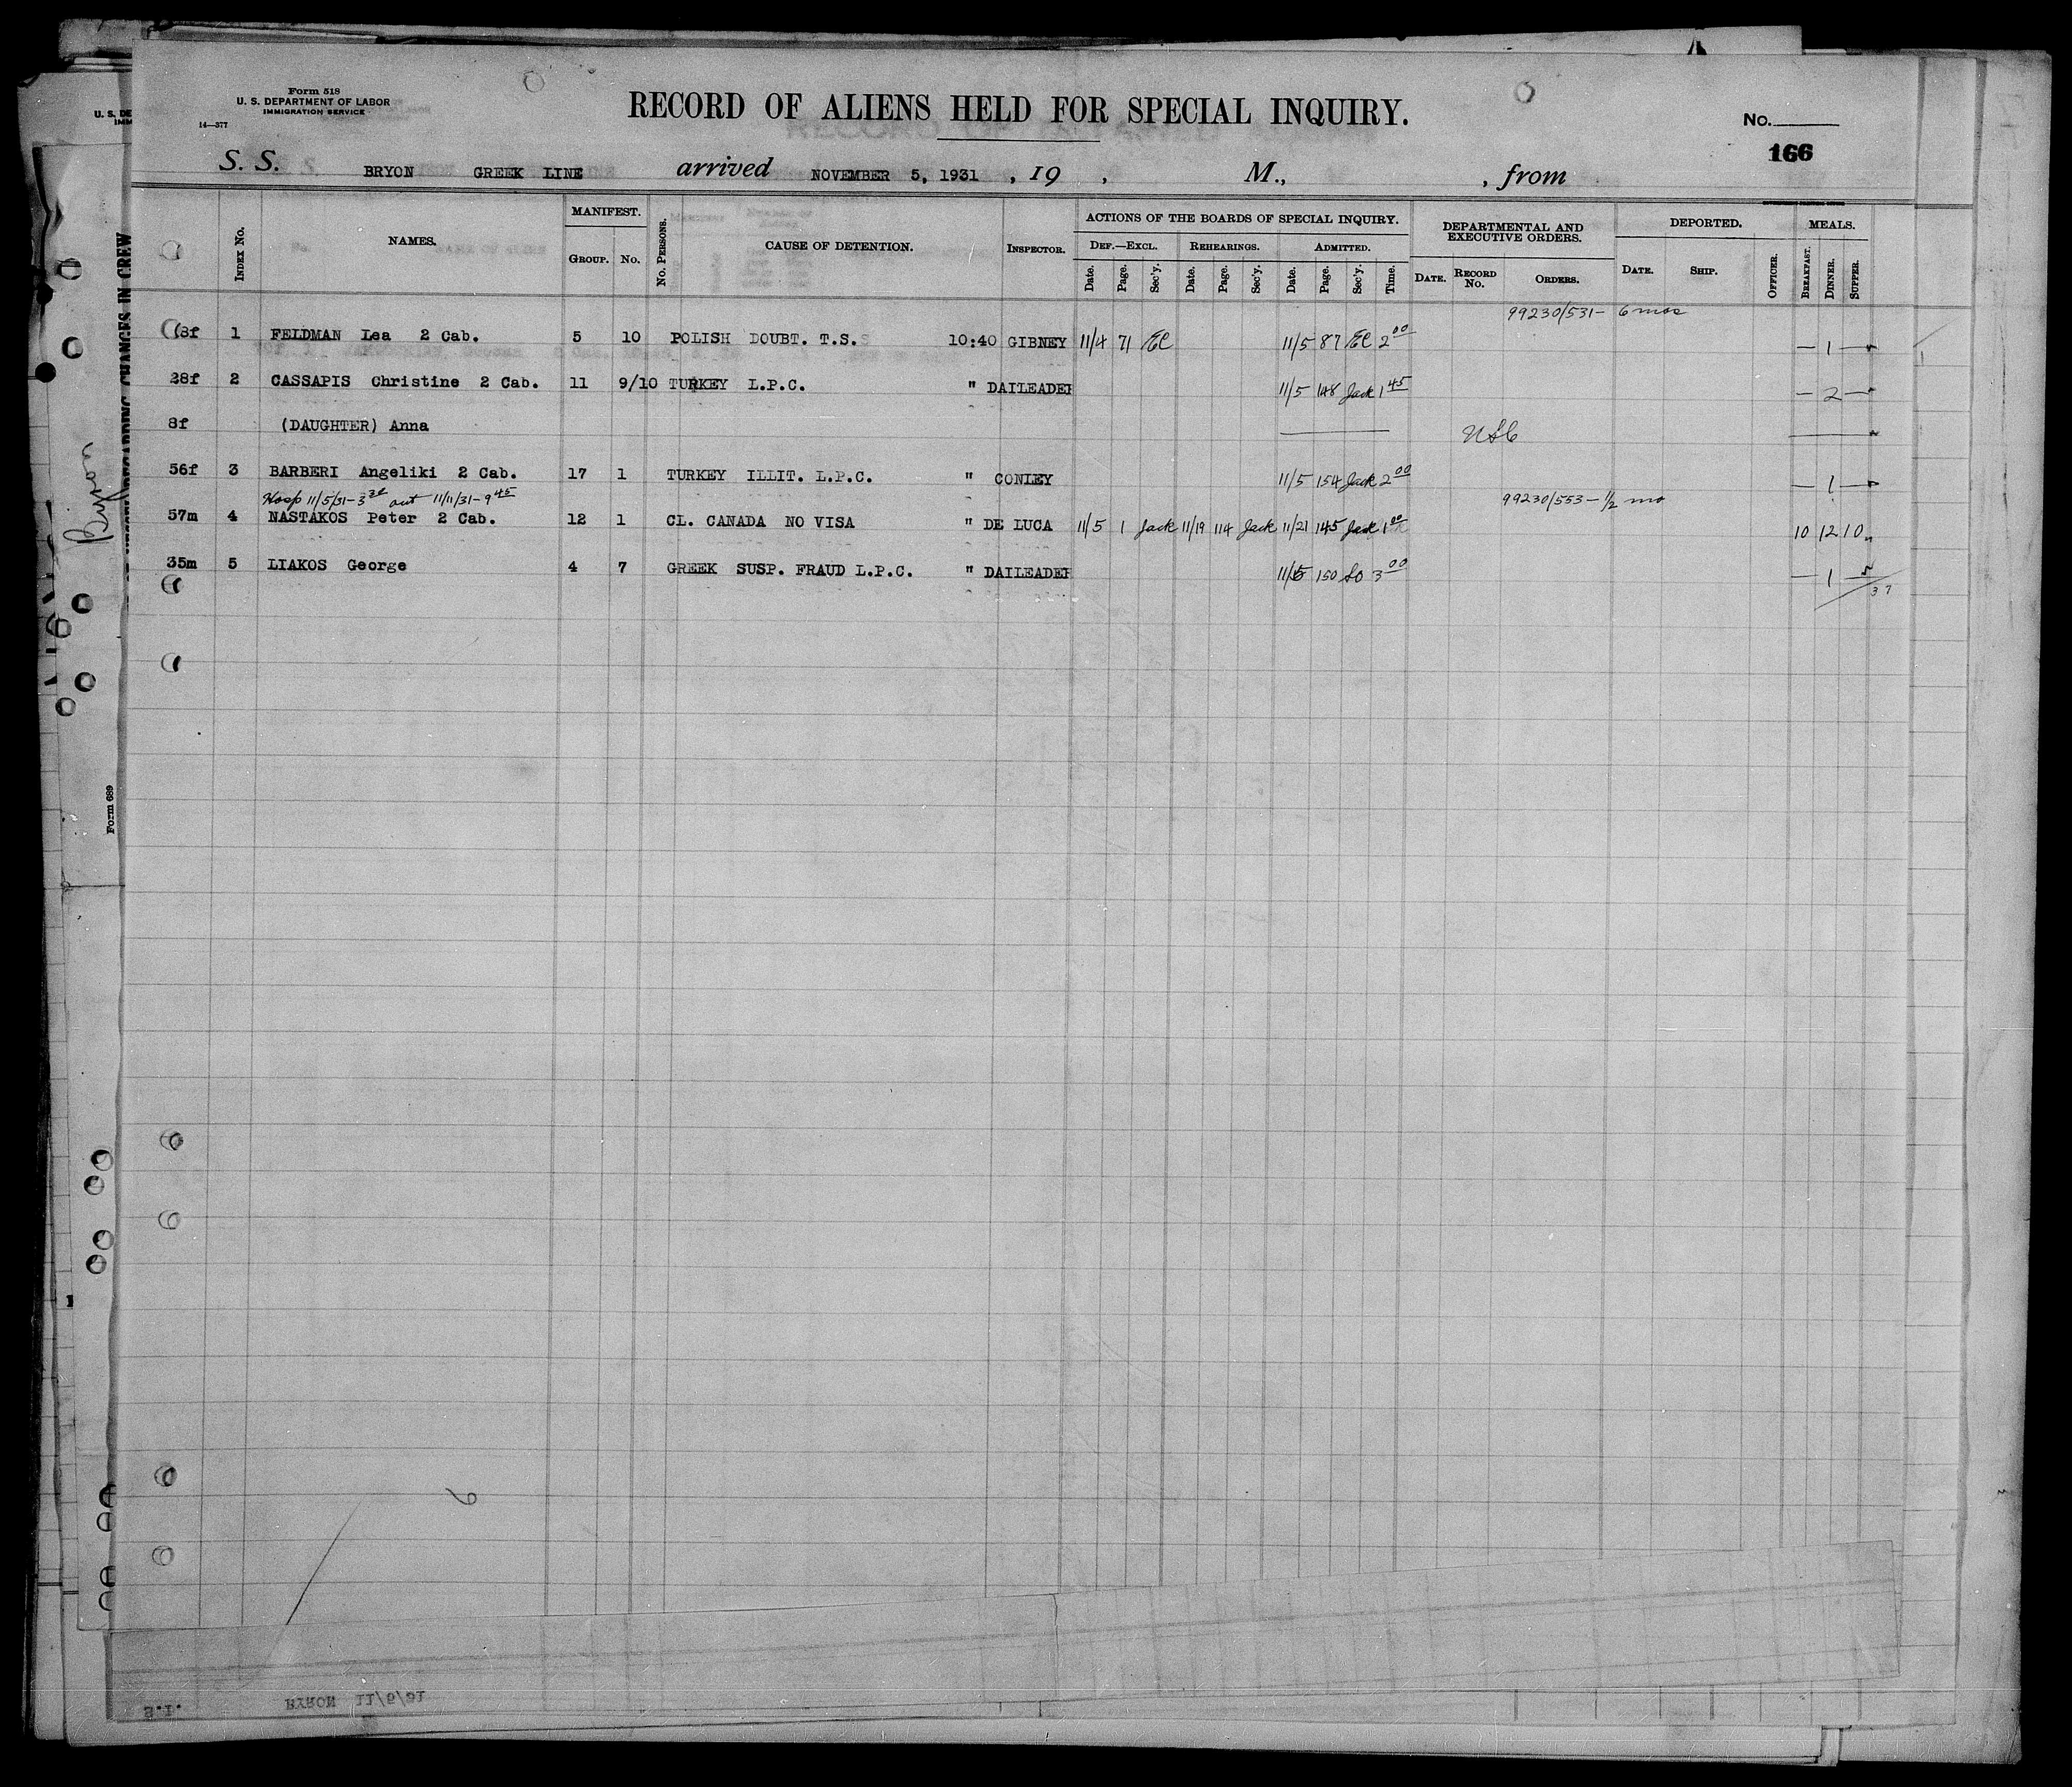 Form 518
U. S. DEPARTMENT OF LABOR
IMMIGRATION SERVICE
14—377
RECORD OF ALIENS HELD FOR SPECIAL INQUIRY.
No.
166
S. S. BRYON GREEK LINE arrived NOVEMBER 5, 1931 , 19 , M., , from
INDEX No. NAMES. MANIFEST. GROUP. No. No. PERSONS. CAUSE OF DETENTION. INSPECTOR. ACTIONS OF THE BOARDS OF SPECIAL INQUIRY. DEF.—EXCL. Date. Page. Sec'y. REHEARINGS. Date. Page. Sec'y. ADMITTED. Date. Page. Sec'y. Time. DEPARTMENTAL AND EXECUTIVE ORDERS. DATE. RECORD No. ORDERS. DEPORTED. DATE. SHIP. OFFICER. MEALS. BREAKFAST. DINNER. SUPPER.
99230/531- 6 mos
8f 1 FELDMAN Lea 2 Cab. 5 10 POLISH DOUBT. T.S. 10:40 GIBNEY 11/4 71 EC 11/5 87 EC 2 00 — 1 —
28f 2 CASSAPIS Christine 2 Cab. 11 9/10 TURKEY L.P.C. " DAILEADER 11/5 148 Jack 1 45 — 2 —
8f (DAUGHTER) Anna USC
56f 3 BARBERI Angeliki 2 Cab. 17 1 TURKEY ILLIT. L.P.C. " CONLEY 11/5 154 Jack 2 00 — 1 —
Hosp 11/5/31-3 30 out 11/11/31-9 45 99230/553- 1/2 mo
57m 4 NASTAKOS Peter 2 Cab. 12 1 CL. CANADA NO VISA " DE LUCA 11/5 1 Jack 11/19 114 Jack 11/21 145 Jack 1 00 10 12 10
35m 5 LIAKOS George 4 7 GREEK SUSP. FRAUD L.P.C. " DAILEADER 11/5 150 3 00 — 1 —
37
Byron
Form 689
REGARDING CHANGES IN CREW
S.I. BYRON 11/5/31